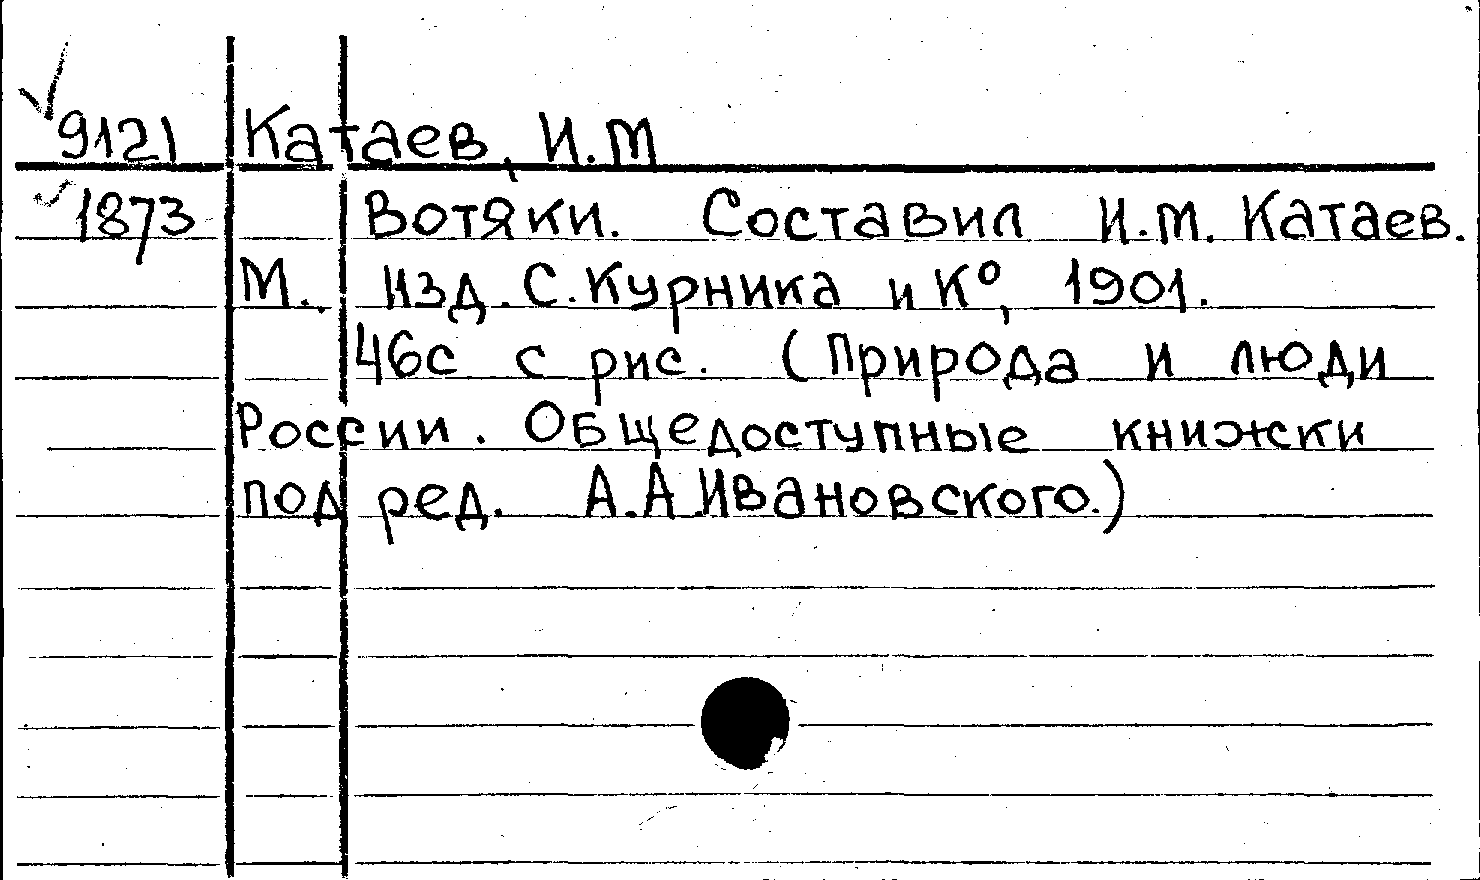 9121 Катаев, И.М
1873 Вотяки. Составил И.М. Катаев.
М. Изд. С. Курника и К⁰, 1901.
46с с рис. (Природа и люди
России. Общедоступные книжки
под ред. А.А.Ивановского.)